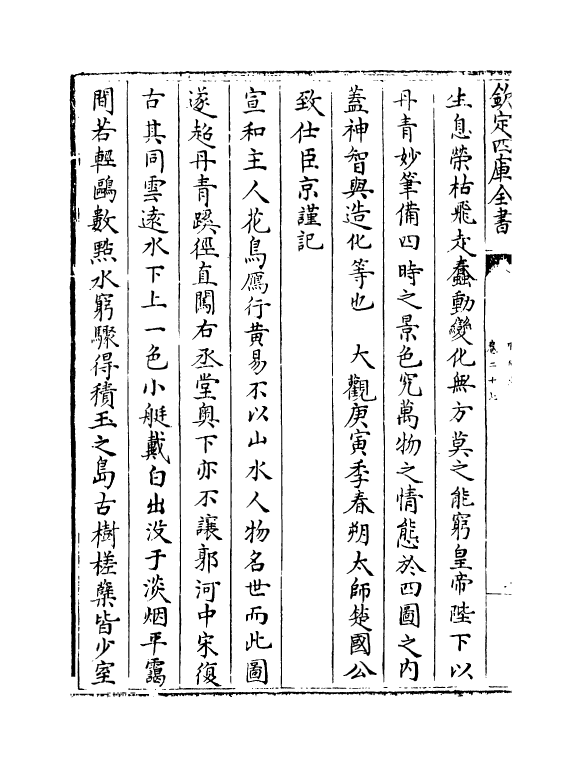 欽定四庫全書
卷二十七
生息榮枯飛走蠢動變化無方莫之能窮皇帝陛下以
丹青妙筆備四時之景色究萬物之情態於四圖之内
蓋神智與造化等也　大觀庚寅季春朔太師楚國公
致仕臣京謹記
宣和主人花鳥鴈行黄易不以山水人物名世而此圖
遂超丹青蹊徑直闖右丞堂奥下亦不讓郭河中宋復
古其同雲遠水下上一色小艇戴白出没于淡烟平靄
間若輕鷗數㸃水窮驟得積玉之島古樹槎蘖皆少室